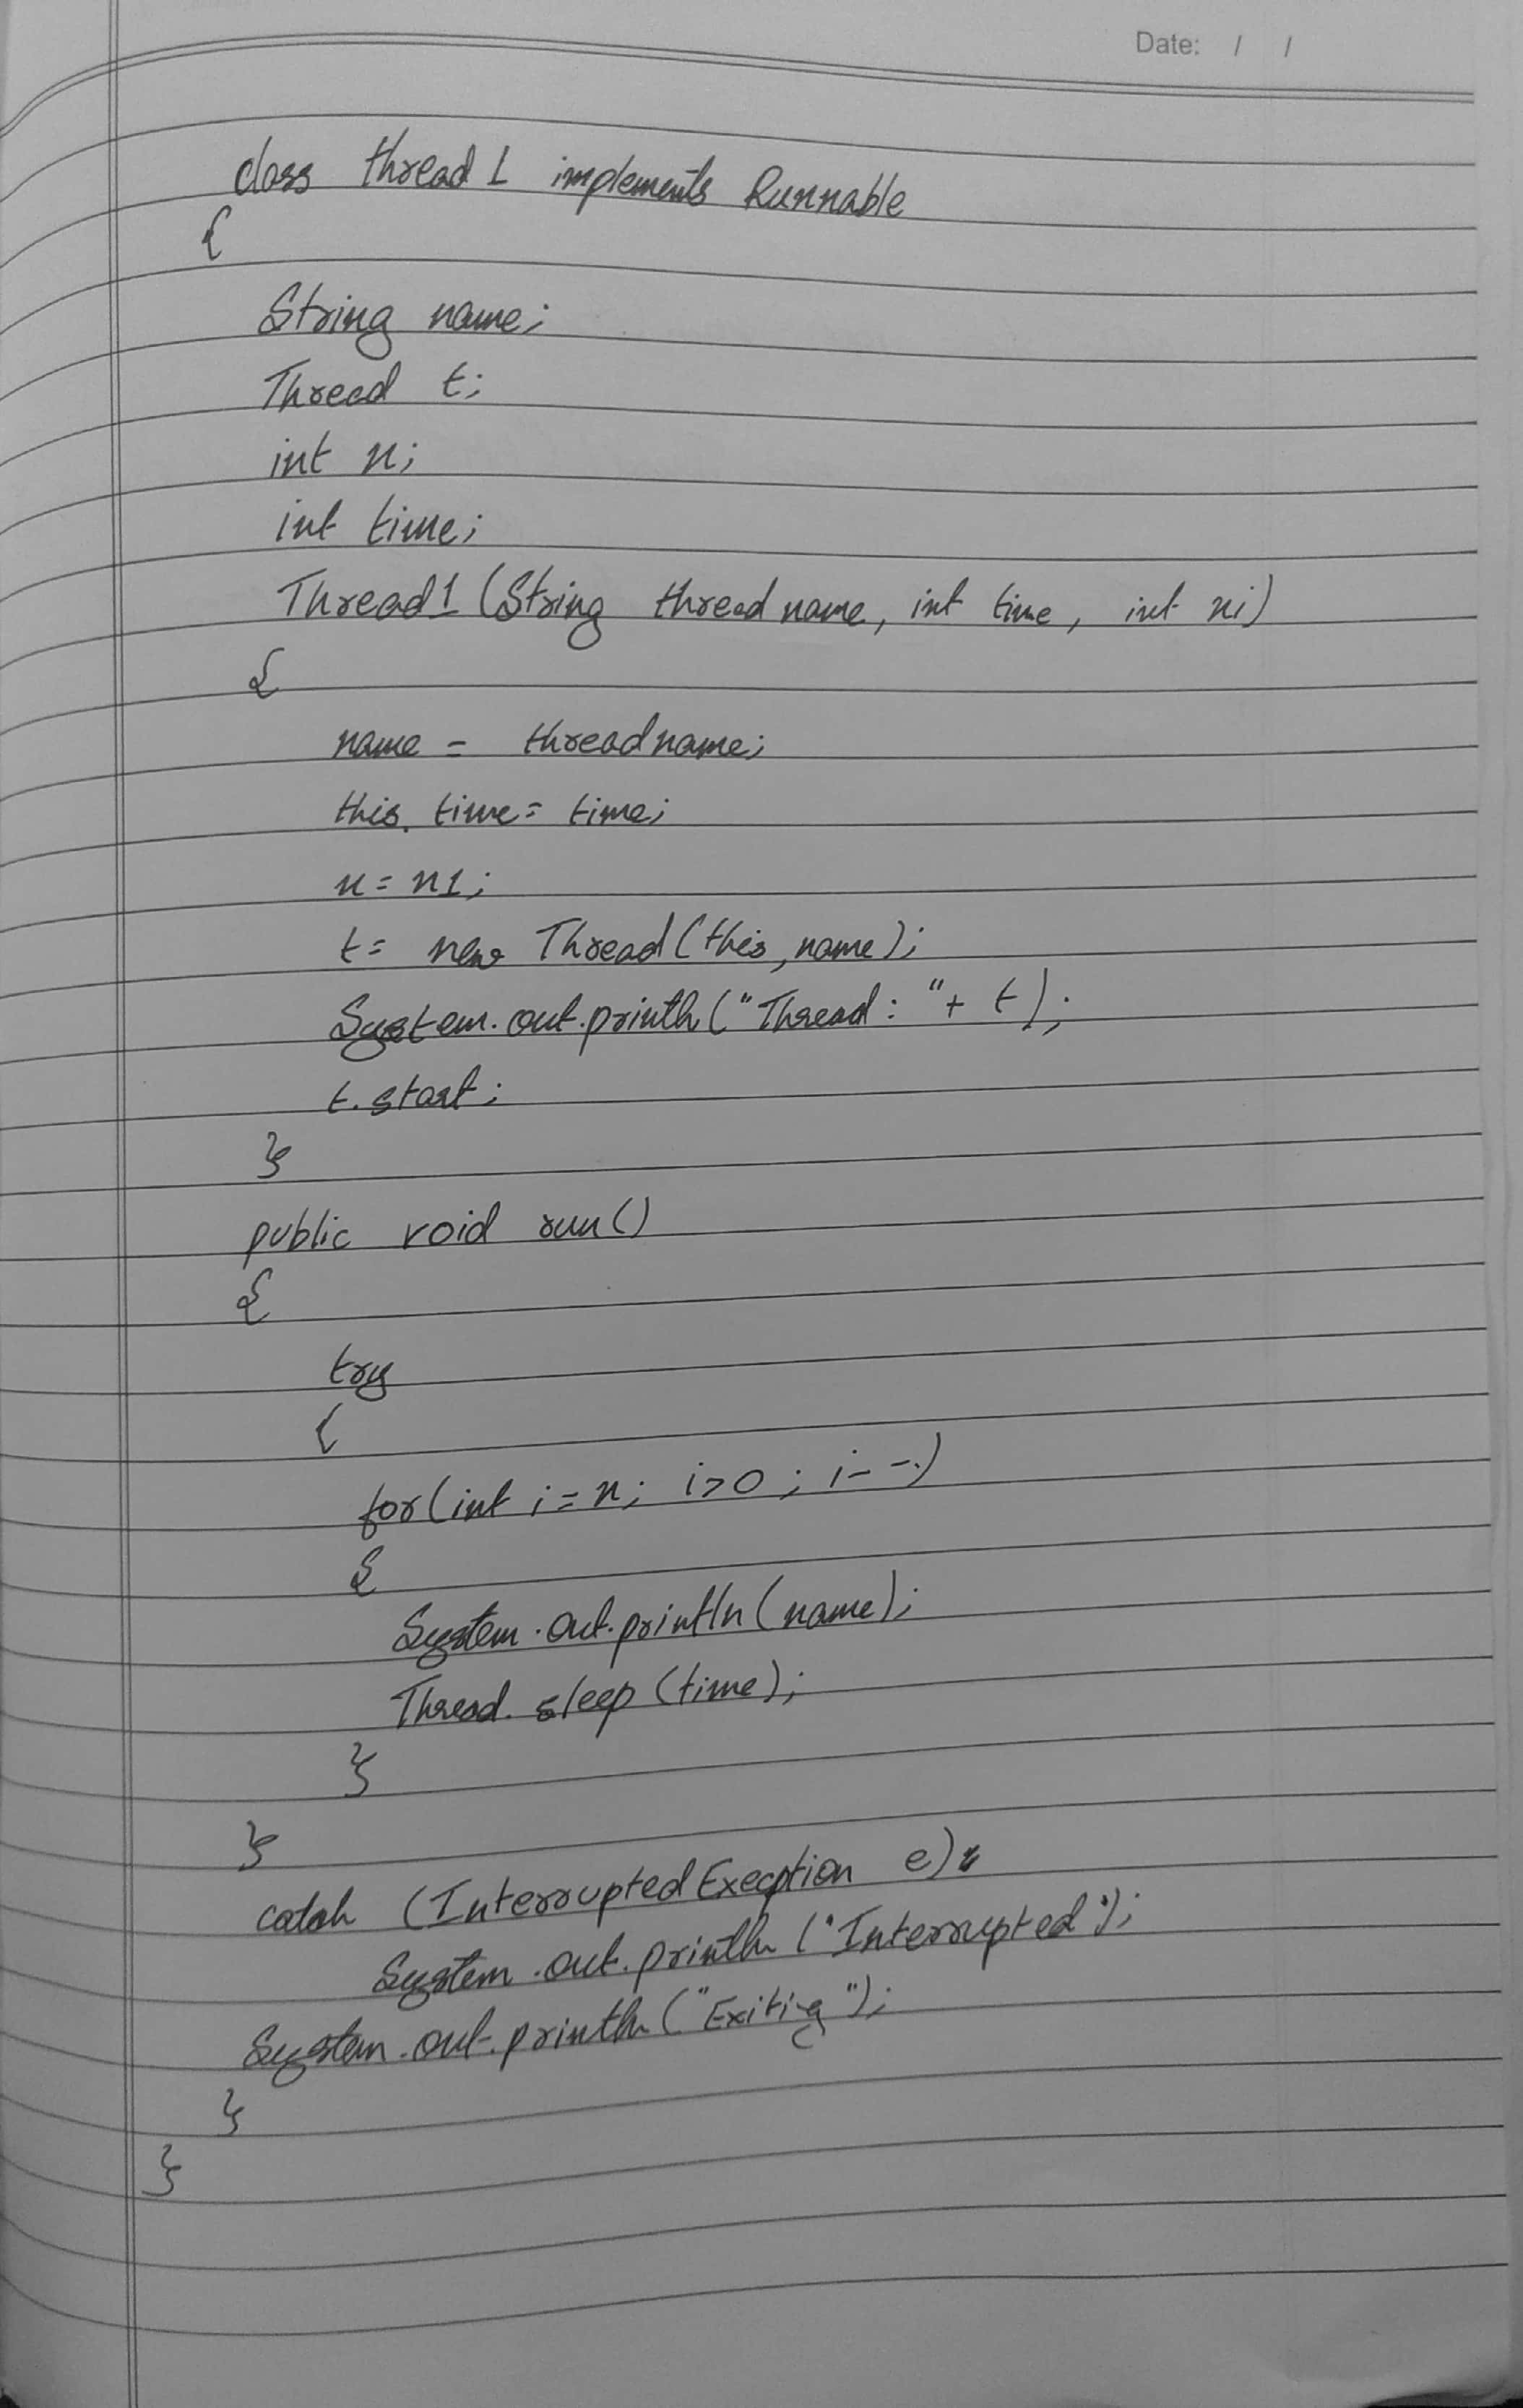 Date: / /
class thread 1 implements Runnable
{
String name;
Thread t;
int n;
int time;
Thread1 (String threadname, int time, int ni)
{
name = threadname;
this. time = time;
n = n1;
t = new Thread (this, name);
System.out.println ("Thread : " + t);
t. start;
}
public void run ()
{
try
{
for (int i = n; i>0 ; i--)
{
System.out.println (name);
Thread. sleep (time);
}
}
catch (Interrupted Exception e)
System.out.println ("Interrupted");
System.out.println ("Exiting");
}
}